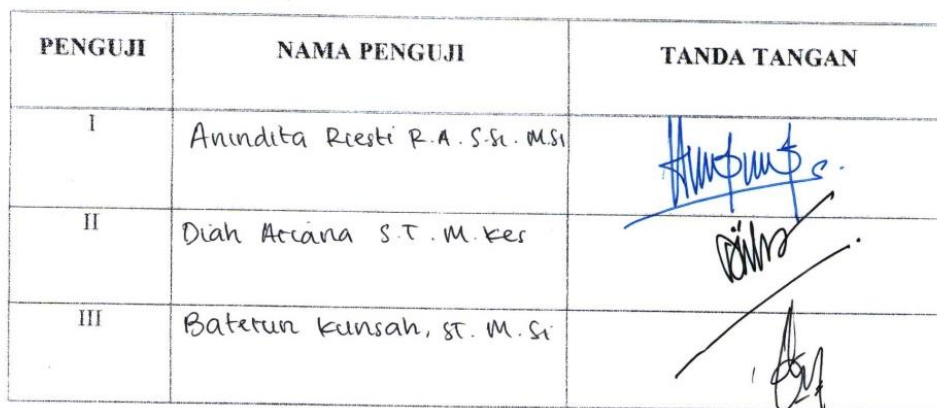 PENGUJI NAMA PENGUJI TANDA TANGAN
I Anindita Riesti R.A. S.Si. M.Si
II Diah Ariana S.T. M. Kes
III Baterun Kunsah, ST. M. Si